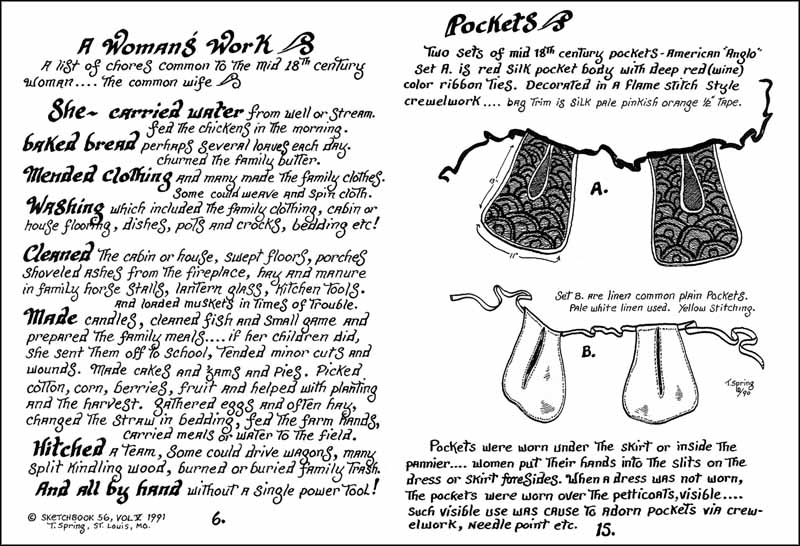 A Woman's Work
A list of chores common to the mid 18th century
woman.... The common wife
She~ carried water from well or stream.
fed the chickens in the morning.
baked bread perhaps several loaves each day.
churned the family butter.
Mended clothing and many made the family clothes.
Some could weave and spin cloth.
Washing which included the family clothing, cabin or
house flooring, dishes, pots and crocks, bedding etc!
Cleaned the cabin or house, swept floors, porches
shoveled ashes from the fireplace, hay and manure
in family horse stalls, lantern glass, kitchen tools.
and loaded muskets in times of trouble.
Made candles, cleaned fish and small game and
prepared the family meals.... if her children did,
she sent them off to school, tended minor cuts and
wounds. Made cakes and jams and pies. Picked
cotton, corn, berries, fruit and helped with planting
and the harvest. gathered eggs and often hay,
changed the straw in bedding, fed the farm hands,
carried meals or water to the field.
Hitched a team, some could drive wagons, many
split kindling wood, burned or buried family trash.
And all by hand without a single power tool!
© Sketchbook 56, Vol. V 1991
T. Spring, St. Louis, Mo.
6.
Pockets
Two sets of mid 18th century pockets - American "Anglo"
Set A. is red silk pocket body with deep red (wine)
color ribbon ties. Decorated in a flame stitch style
crewelwork.... bag trim is silk pale pinkish orange ½" tape.
A.
11"
Set B. are linen common plain pockets.
Pale white linen used. Yellow stitching.
B.
T. Spring
Pockets were worn under the skirt or inside the
pannier.... women put their hands into the slits on the
dress or skirt foresides. When a dress was not worn,
the pockets were worn over the petticoats, visible....
Such visible use was cause to adorn pockets via crew-
elwork, needle point etc.
15.